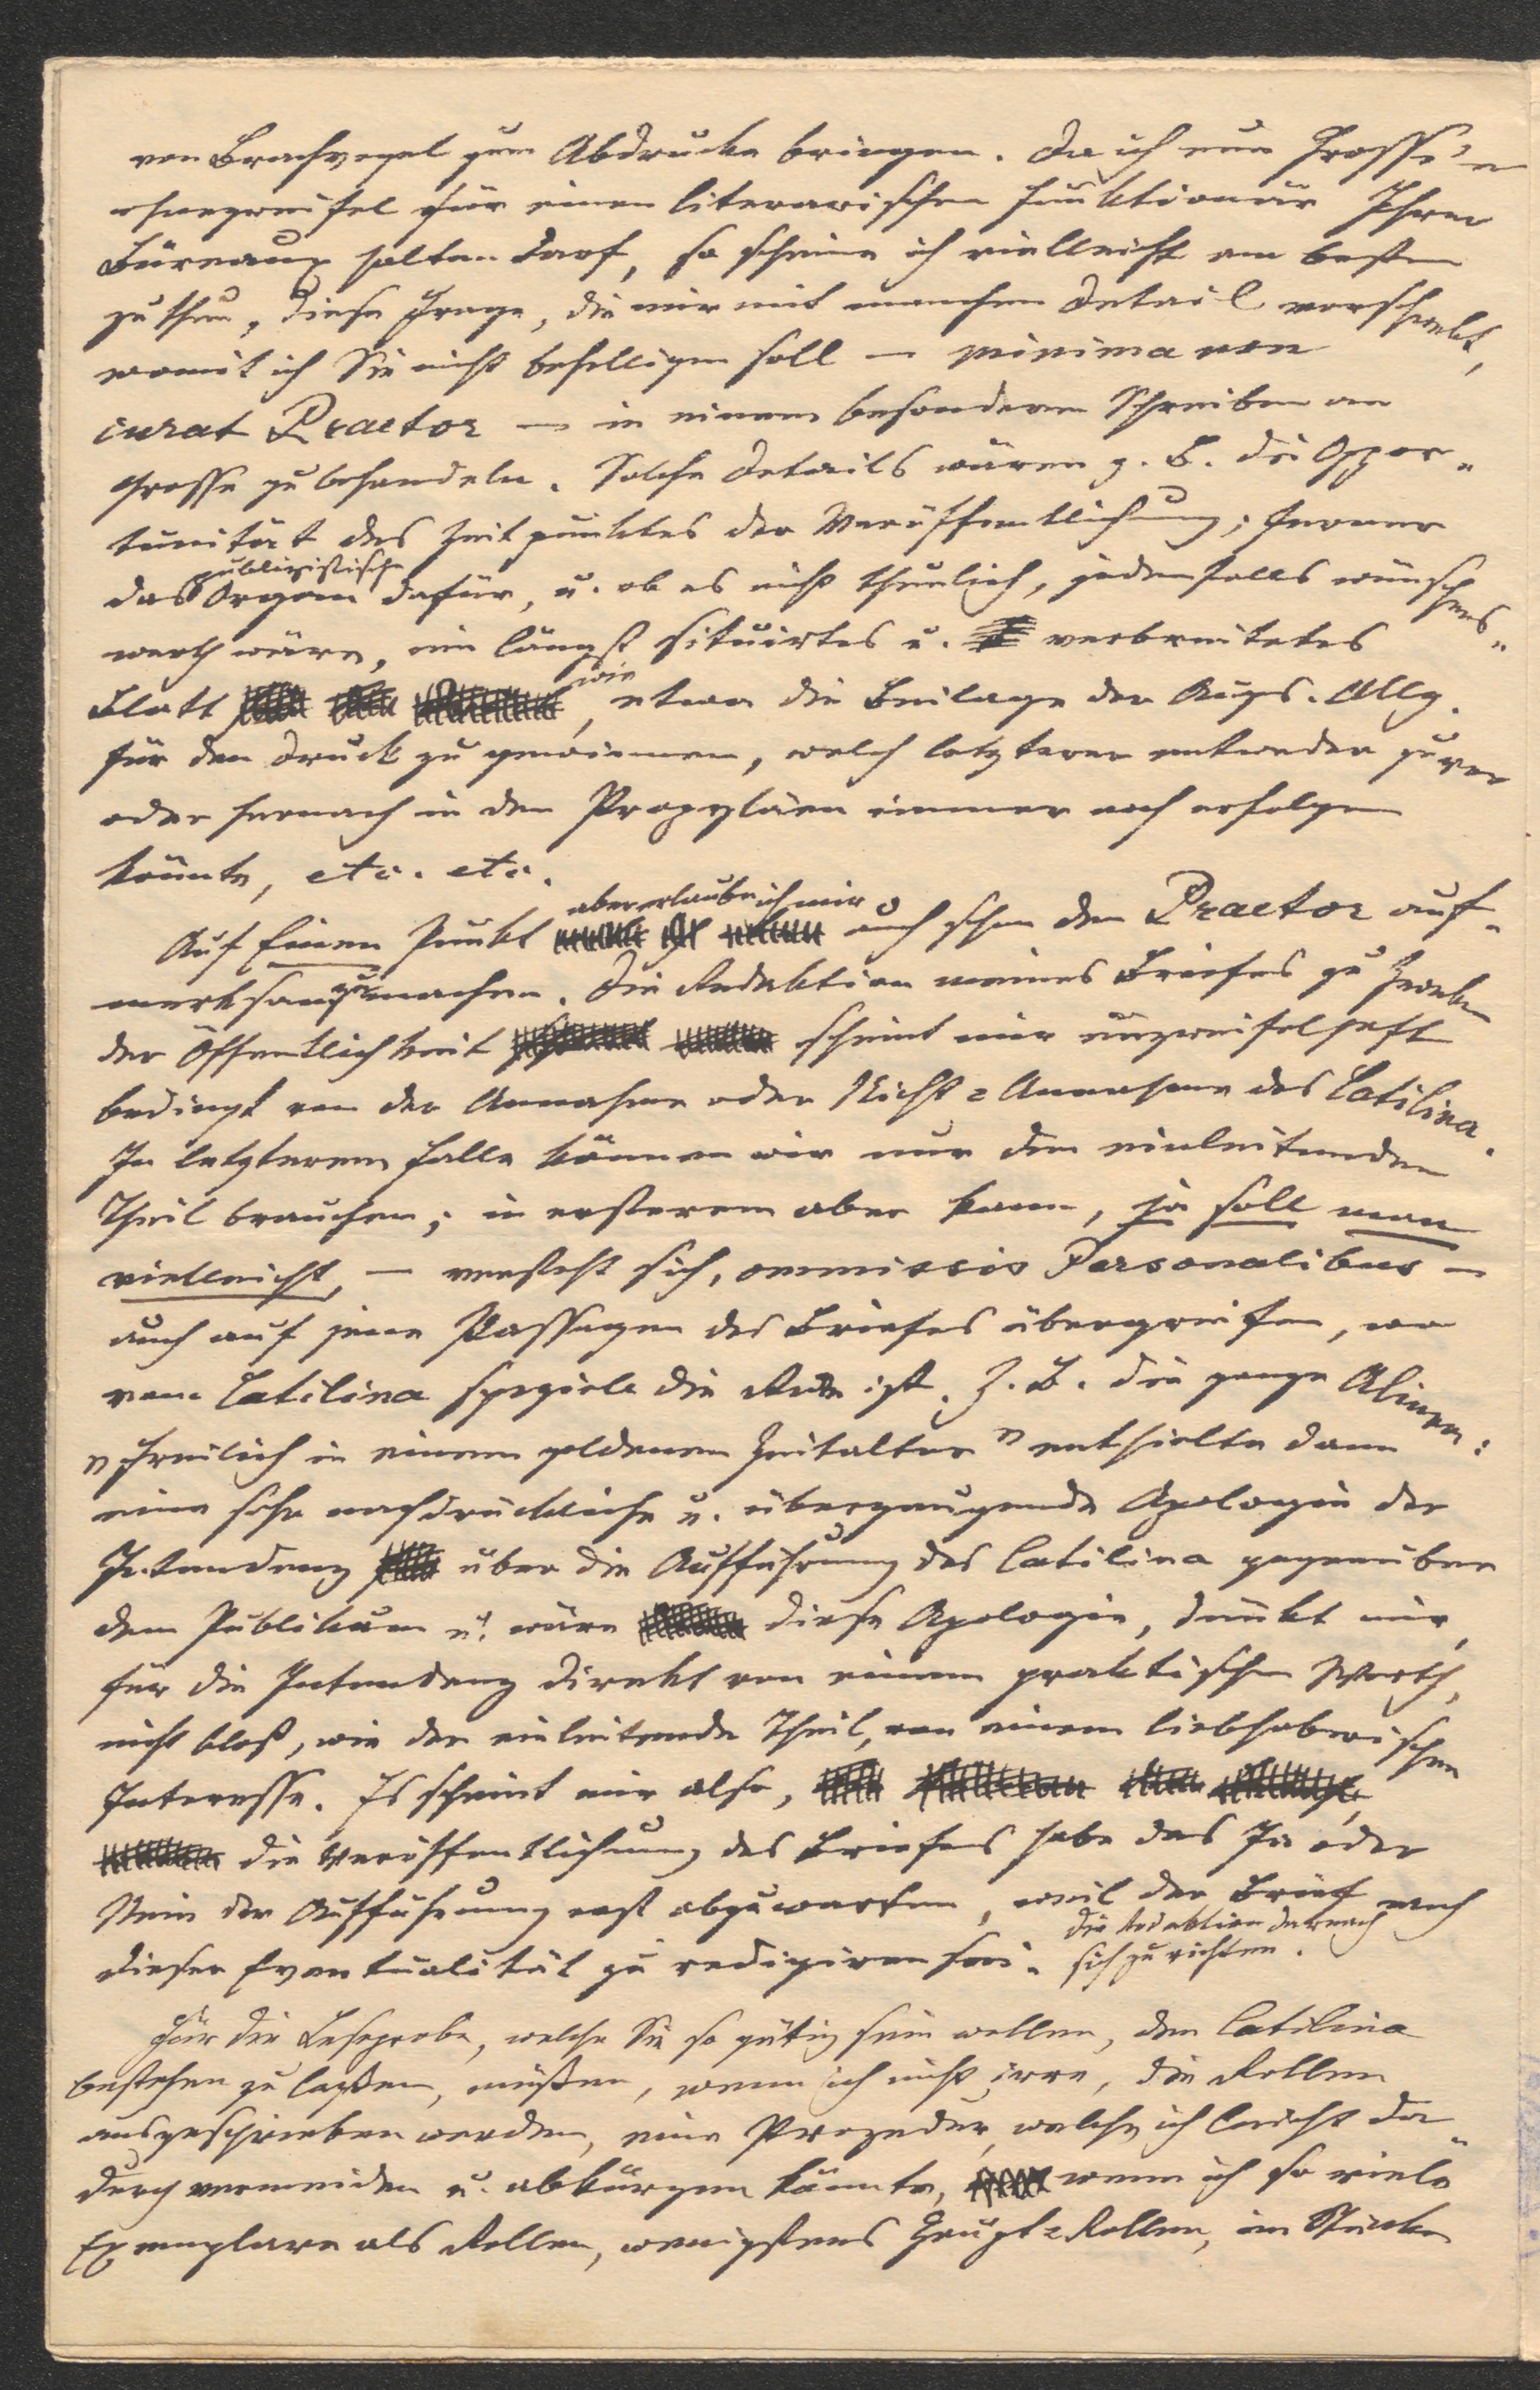 von Brachvogel zum Abdrucke bringen. Da ich nun Grosse'n
ohnezweifel für einen literarischen Funktionär Ihrer
Büreaux halten darf, so scheine ich vielleicht am besten
zu thun, diese Frage, die mir mit manchen Detail vorschwebt,
womit ich Sie nicht behelligen soll – minima non
curat Praetor – in einem besonderen Schreiben an
Grosse zu behandeln. Solche Details wären z. B. die Oppor-
tunität des Zeitpunktes der Veröffentlichung; ferner
das publizistische Organ dafür, u. ob es nicht thunlich, jedenfalls wünschens-
werth wäre, ein längst situirtes u. verbreitetes
Blatt wie, etwa die Beilage der Augs. Allg.
für den Druck zu gewinnen, welch letzterer entweder zuvor
oder hernach in den Propyläen immer noch erfolgen
könnte, etc. etc.
Auf Einen Punkt aber erlaube ich mir auch schon den Praetor auf-
merksam zu machen. Die Redaktion meines Briefes zu Zwecken
der Öffentlichkeit scheint mir unzweifelhaft
bedingt von der Annahme oder Nicht-Annahme des Catilina.
In letzterem Falle können wir nur den einleitenden
Theil brauchen; in ersterem aber kann, ja soll man
vielleicht, – versteht sich, ommissis Personalibus –
auch auf jene Passagen des Briefes übergreifen, wo
vom Catilina speziele die Rede ist. Z. B. die ganze Alinea:
"Freilich in einem goldenen Zeitalter" enthielte dann
eine sehr nachdrückliche u. überzeugende Apologie der
Intendenz über die Aufführung des Catilina gegenüber
dem Publikum u. wäre diese Apologie, dünkt mir,
für die Intendenz direkt von einem praktischen Werth,
nicht bloß, wie der einleitende Theil, von einem liebhaberischen
Interesse. Es scheint mir also,
die Veröffentlichung des Briefes habe das Ja oder
Nein der Aufführung erst abzuwarten, weil der Brief nach
dieser Eventualität zu redigiren sei. die Redaktion darnach
sich zu richten.
Für die Leseprobe, welche Sie so gütig sein wollen, den Catilina
bestehen zu laßen, müßen, wenn ich nicht irre, die Rollen
ausgeschrieben werden, eine Prozedur, welche ich leicht da-
durch vermeiden u. abkürzen könnte, wenn ich so viele
Exemplare als Rollen, wenigstens Haupt-Rollen, im Stücke